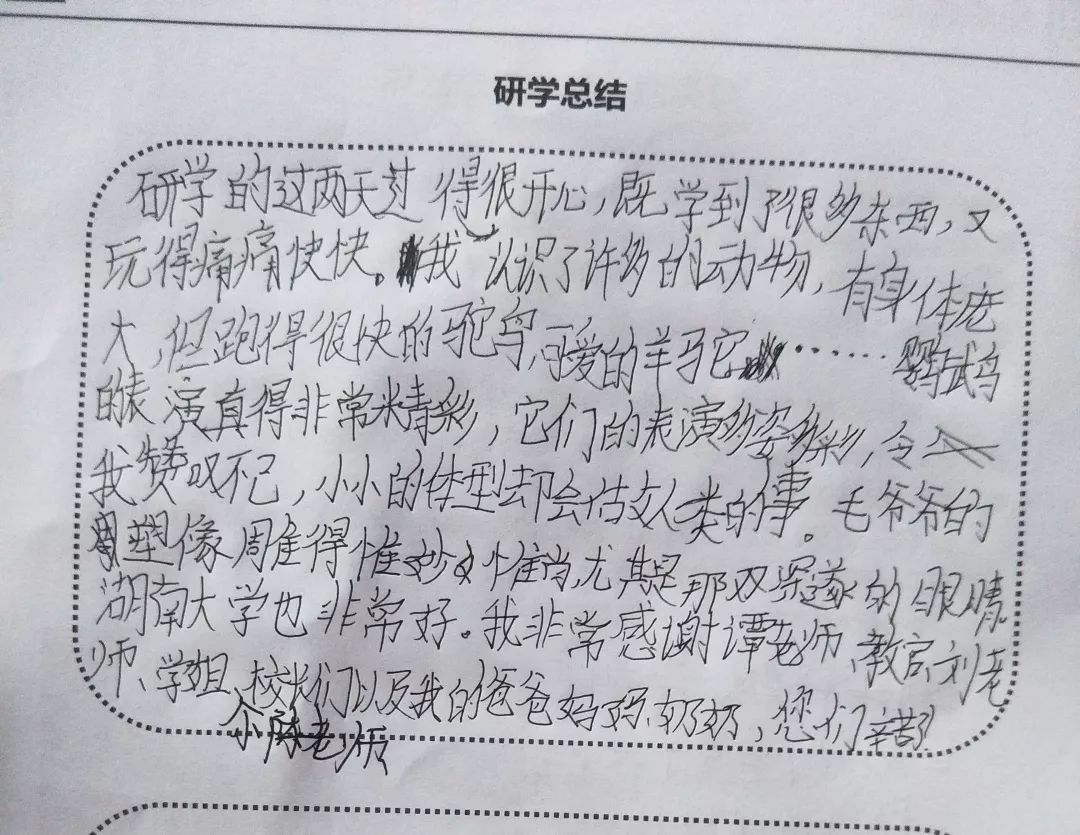 研学总结
研学的这两天过得很开心,既学到了很多东西,又
玩得痛痛快快。我认识了许多的动物,有身体庞
大,但跑得很快的驼鸟,可爱的羊驼它……鹦鹉鸟
的表演真得非常精彩,它们的表演多姿多彩,令
我赞叹不己,小小的体型却会估支人类的事。毛爷爷的
塑像雕得惟妙惟肖,尤其是那双深邃的眼睛。
湖南大学也非常好。我非常感谢谭老师、教官、刘老
师、学姐、校长们以及我的爸爸妈妈、奶奶,您们辛苦了
余陈老师